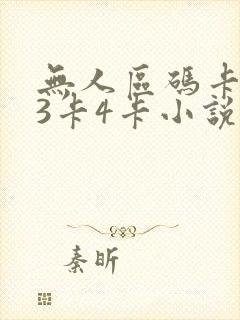 無人區碼卡
3卡4卡小說
秦昕